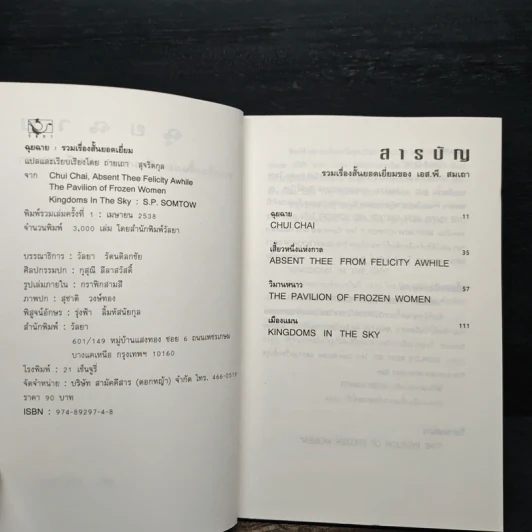 ฉุยฉาย : รวมเรื่องสั้นยอดเยี่ยม
แปลและเรียบเรียงโดย ถ่ายเถา สุจริตกุล
จาก Chui Chai, Absent Thee Felicity Awhile
The Pavilion of Frozen Women
Kingdoms In The Sky : S.P. SOMTOW
พิมพ์รวมเล่มครั้งที่ 1 : เมษายน 2538
จำนวนพิมพ์ 3,000 เล่ม โดยสำนักพิมพ์วัลยา
บรรณาธิการ : วัลยา รัตนดิลกชัย
ศิลปกรรมปก : กุสุณี ลีลาสวัสดิ์
รูปเล่มภายใน : กราฟิกสามสี
ภาพปก : สุชาติ วงษ์ทอง
พิสูจน์อักษร : รุ่งฟ้า ลิ้มหัสนัยกุล
สำนักพิมพ์ : วัลยา
601/149 หมู่บ้านแสงทอง ซอย 6 ถนนเพชรเกษม
บางแคเหนือ กรุงเทพฯ 10160
โรงพิมพ์ : 21 เซ็นจูรี่
จัดจำหน่าย : บริษัท สามัคคีสาร (ดอกหญ้า) จำกัด โทร.
ราคา 90 บาท
ISBN : 974-89297-4-8
สารบัญ
รวมเรื่องสั้นยอดเยี่ยมของ เอส.พี. สมเถา
ฉุยฉาย
CHUI CHAI 11
เสี้ยวหนึ่งแห่งกาล
ABSENT THEE FROM FELICITY AWHILE 35
วิมานหนาว
THE PAVILION OF FROZEN WOMEN 57
เมืองแมน
KINGDOMS IN THE SKY 111